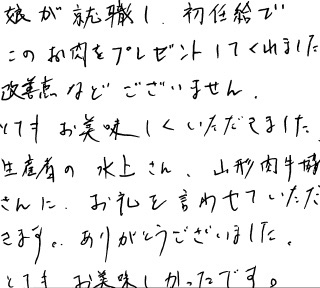 娘が就職し、初任給で
このお肉をプレゼントしてくれました
改善点などございません。
とても お美味しくいただきました
生産者の 水上さん、山形肉牛
さんに、お礼を言わせていただ
きます。ありがとうございました。
とても お美味しかったです。